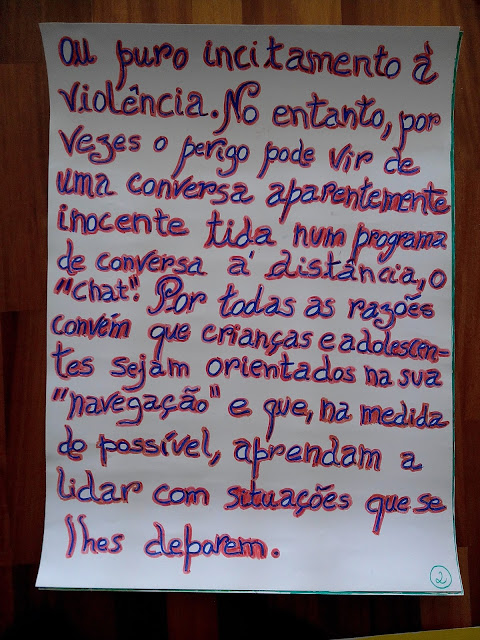 ou puro incitamento à
violência. No entanto, por
vezes o perigo pode vir de
uma conversa aparentemente
inocente tida num programa
de conversa á distância, o
"Chat". Por todas as razões
convém que crianças e adolescen-
tes sejam orientados na sua
"navegação" e que, na medida
do possível, aprendam a
lidar com situações que se
lhes deparem.
2